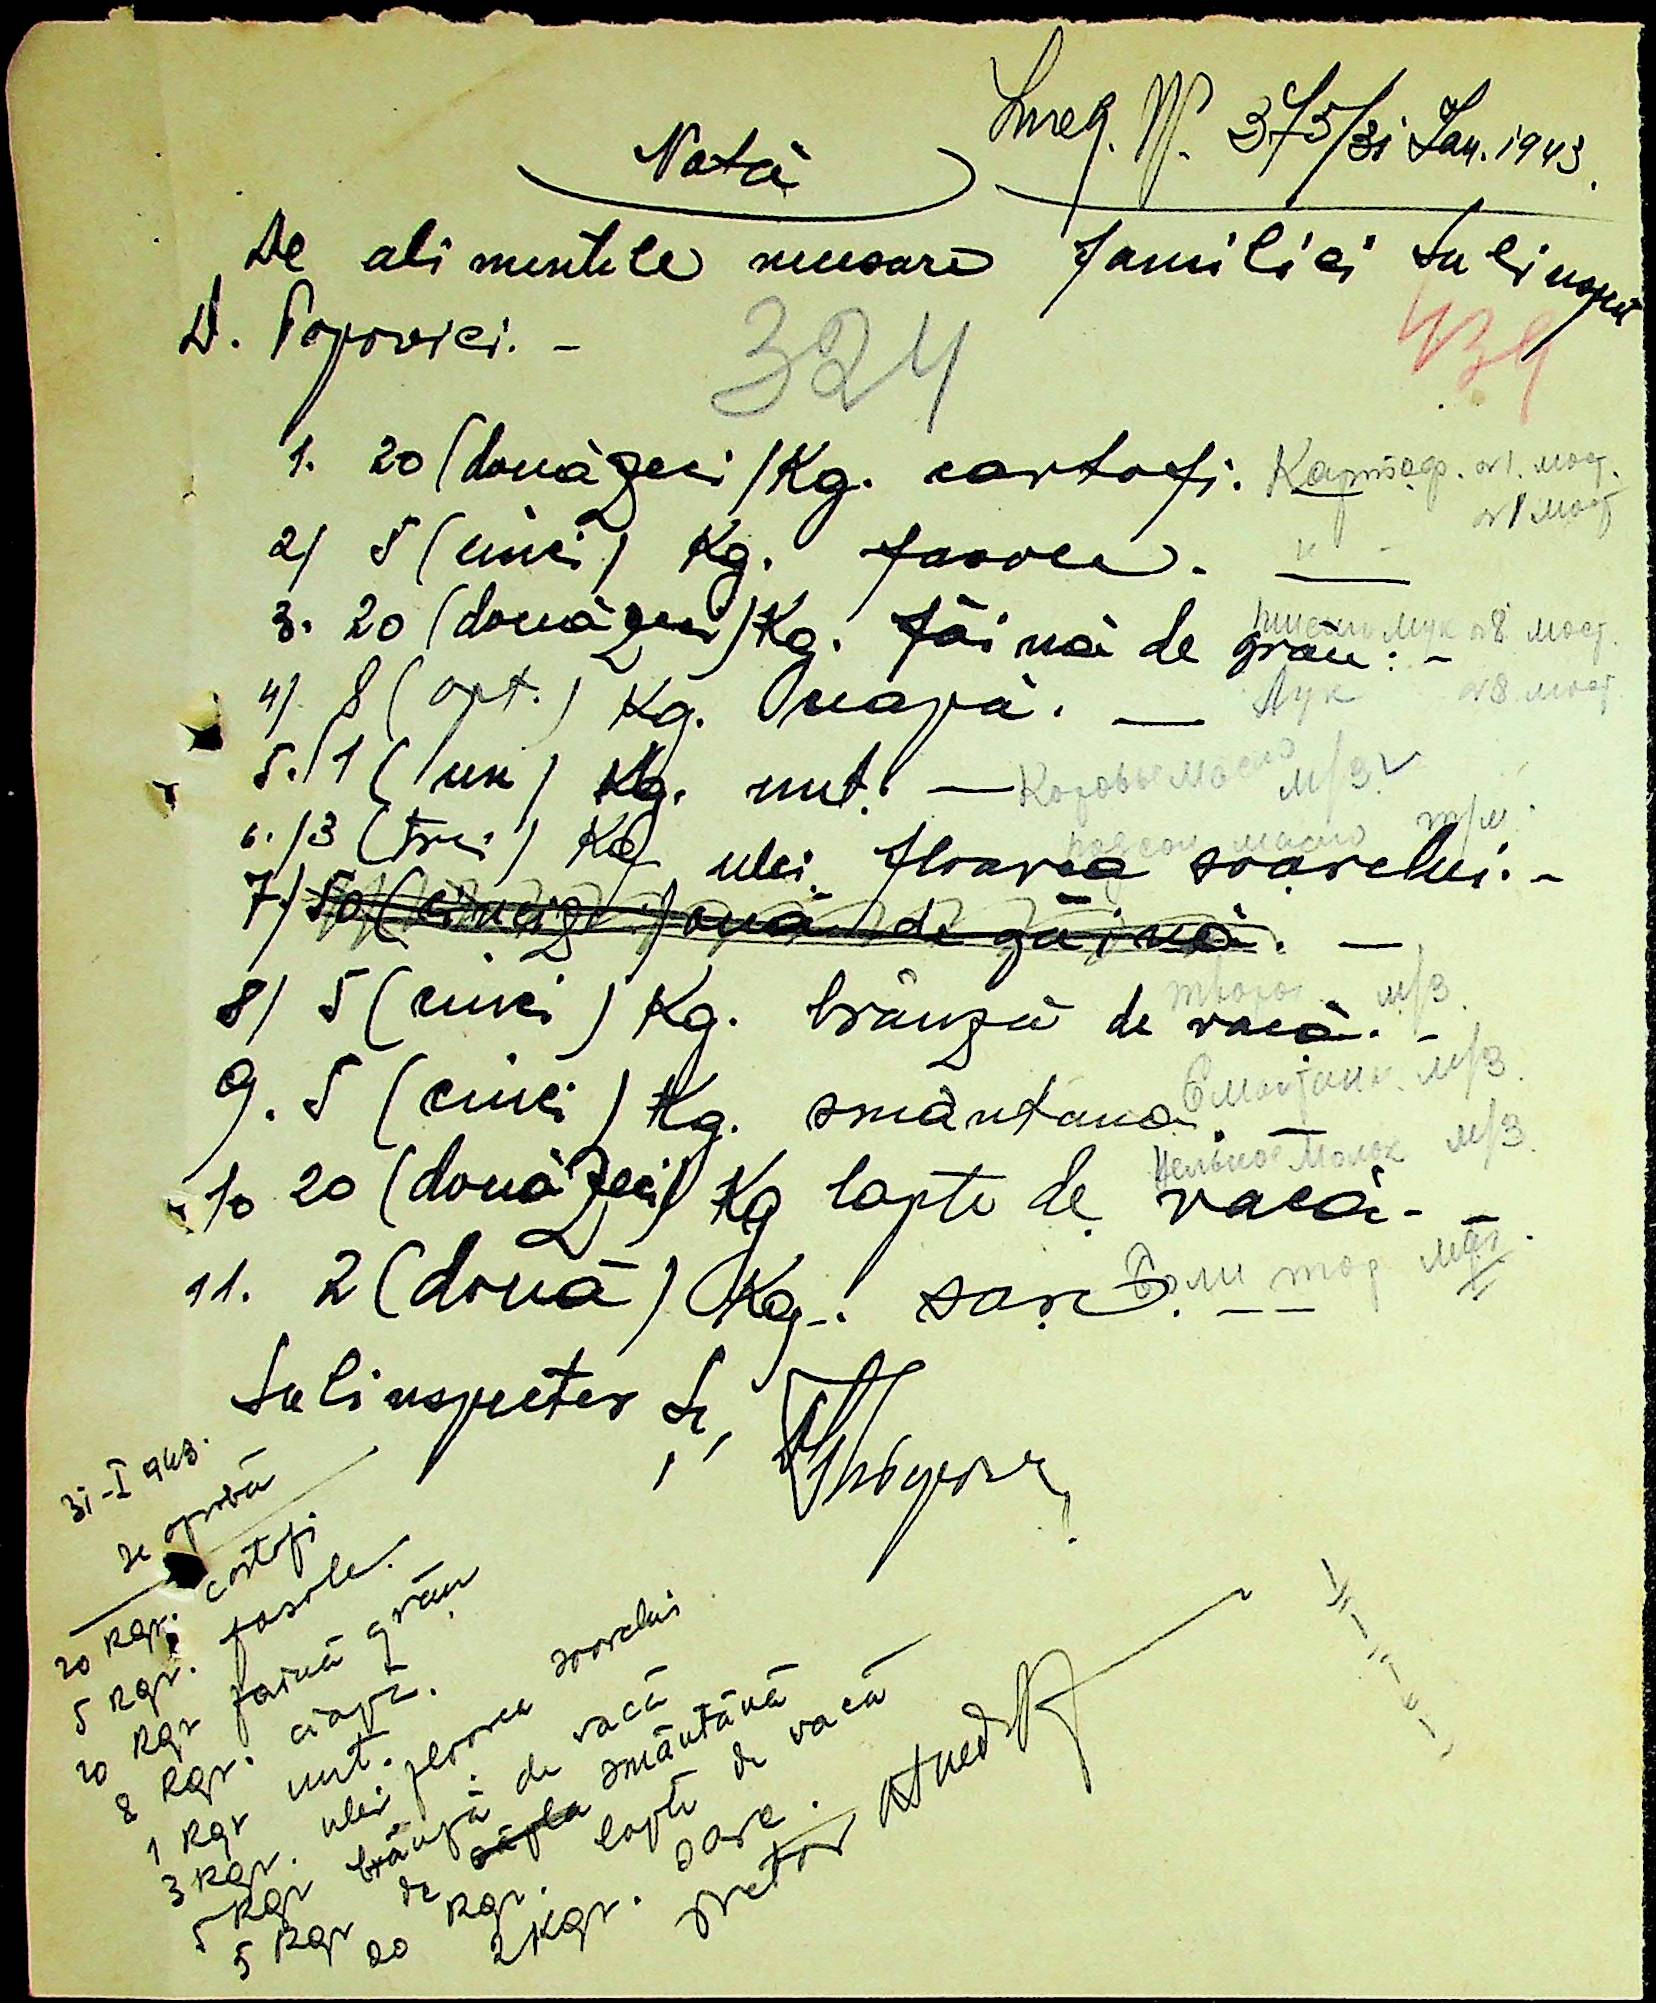 Inreg. Nº. 375/31 Ian. 1943.
Notă
De alimentele necesare familiei Subinspect
D. Popovici. -
324
439
1. 20 (douăzeci) Kg. cartofi. Картоф. от 1. мост.
от 1 мост
2) 5 (cinci) Kg. fasole. -
3. 20 (douăzeci) Kg. făină de grâu. - мук от 8 мост.
4) 8 (opt.) Kg. Ceapă. — Лук от 8 мост.
5. 1 (un) Kg. unt. — Коровье масло м/з.
6. 3 (trei) Kg ulei floarea soarelui. - масло
7.) 50 (cincizeci) ouă de găină. —
8) 5 (cinci) Kg. brânză de vacă. - творог м/з.
9. 5 (cinci) Kg. smântana. Сметана. м/з.
10 20 (douăzeci) Kg lapte de vacă. - Цельное Молок м/з.
11. 2 (două) Kg. sare. — Соли
Subinspector
31-I 943.
se aprobă
20 kgr. cartofi
5 kgr. fasole.
20 kgr faină grâu
8 kgr. ciapă.
1 kgr unt.
3 kgr. ulei floarea soarelui
5 kgr brânză de vacă
5 kgr de smântână
20 kgr. lapte de vacă
2 kgr. sare.
pretor